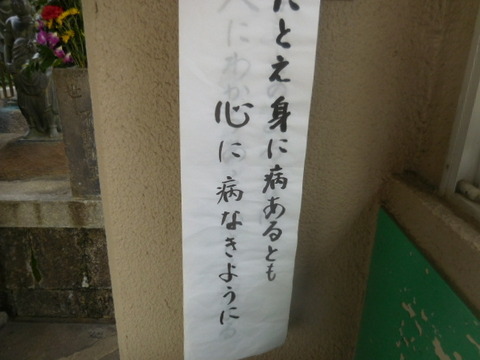 たとえ身に病あるとも
心に病なきように